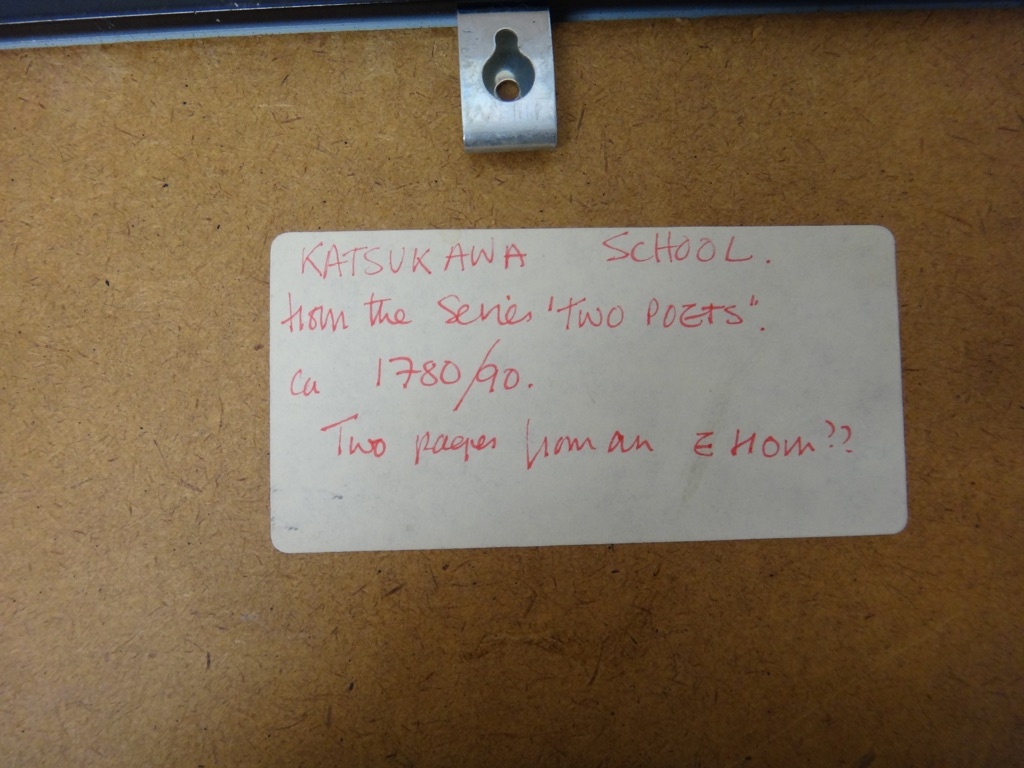 KATSUKAWA SCHOOL.
from the Series "TWO POETS".
ca 1780/90.
Two pages from an E HON??